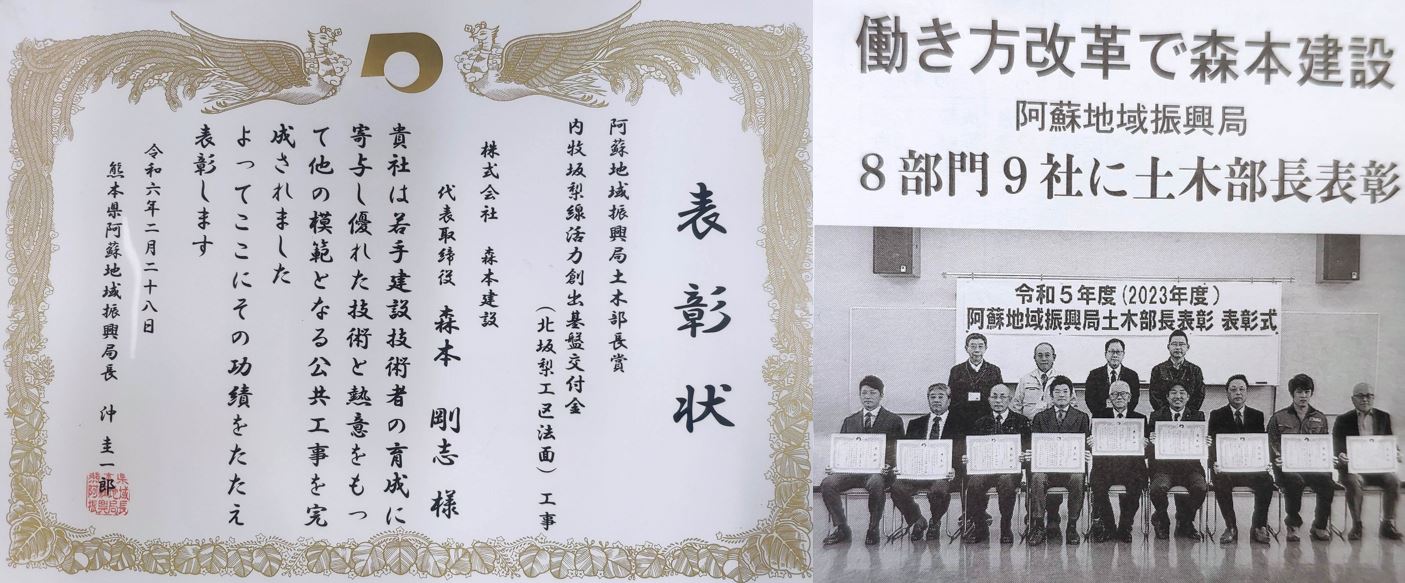 表彰状
阿蘇地域振興局土木部長賞
内牧坂梨線活力創出基盤交付金
（北坂梨工区法面）工事
株式会社　森本建設
代表取締役　森本　剛志　様
貴社は若手建設技術者の育成に
寄与し優れた技術と熱意をもっ
て他の模範となる公共工事を完
成されました
よってここにその功績をたたえ
表彰します
令和六年二月二十八日
熊本県阿蘇地域振興局長　沖　圭一郎
働き方改革で森本建設
阿蘇地域振興局
８部門９社に土木部長表彰
令和５年度(2023年度)
阿蘇地域振興局土木部長表彰 表彰式